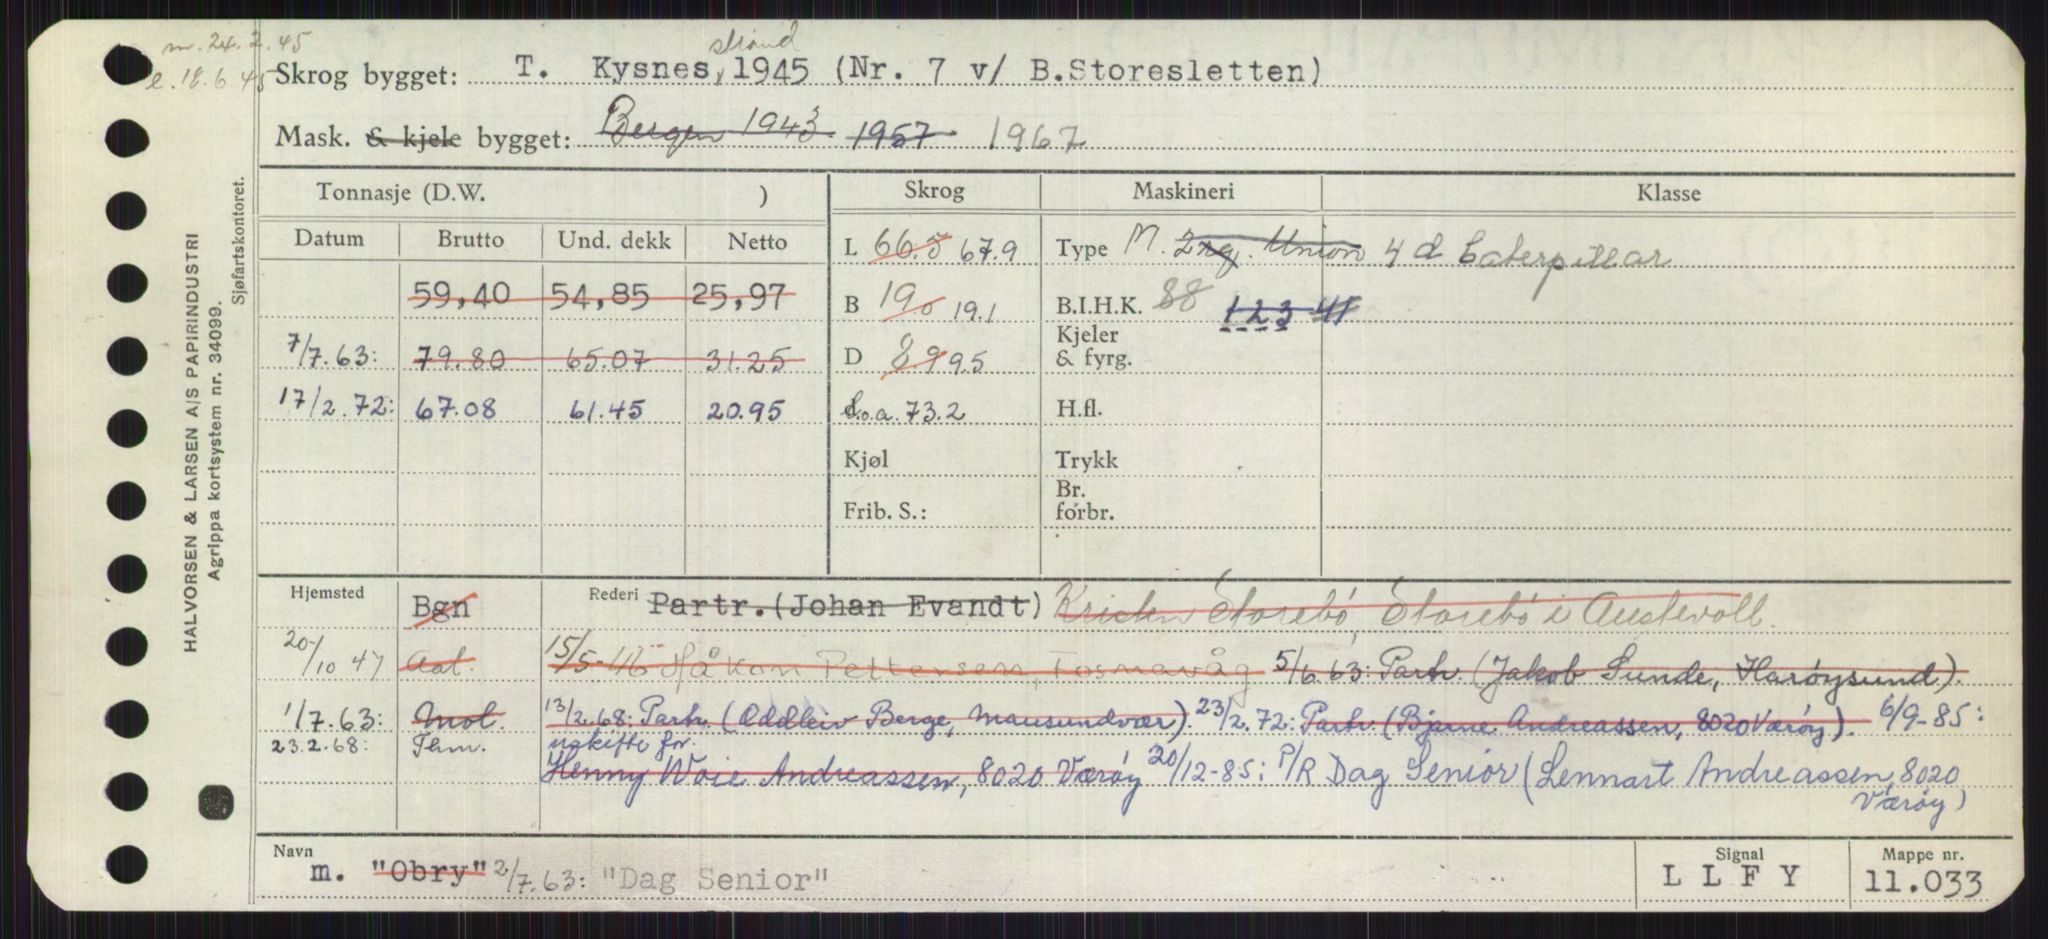 m. 24.2.45
e. 18.6.45
Skrog bygget: T. Kysnesstrand, 1945 (Nr. 7 v/ B.Storesletten)
Mask. & kjele bygget: Bergen 1943 1957 1967
Tonnasje (D.W. ) Skrog Maskineri Klasse
Datum Brutto Und. dekk Netto
L 66.5 67.9 Type M. 2xg. Union 4 d Caterpillar
59,40 54,85 25,97
B 19,0 19.1 B.I.H.K. 88 123 41
7/7.63: 79.80 65.07 31.25 D 8.9 9.5 Kjeler & fyrg.
17/2.72: 67.08 61.45 20.95 L.o.a. 73.2 H.fl.
Kjøl Trykk
Frib. S.: Br. forbr.
Hjemsted Bgn Rederi Partr. (Johan Evandt) Kristen Storebö, Storebö i Austevoll.
20/10 47 Aal. 15/5-46 Håkon Pettersen, Fosnavåg 5/6.63: Partr. (Jakob Sunde, Harøysund).
1/7.63: Mol. 13/2.68: Partr. (Oddleiv Berge, Mausundvær). 23/2.72: Partr. (Bjarne Andreassen, 8020 Værøy). 6/9-85:
23.2.68: Thm. uskifte for.
Henny Woie Andreassen, 8020 Værøy 20/12-85: P/R Dag Senior (Lennart Andreassen, 8020
Værøy)
Navn m. "Obry" 2/7.63: "Dag Senior" Signal LLFY Mappe nr. 11.033
HALVORSEN & LARSEN A/S PAPIRINDUSTRI
Agrippa kortsystem nr. 34099.
Sjøfartskontoret.